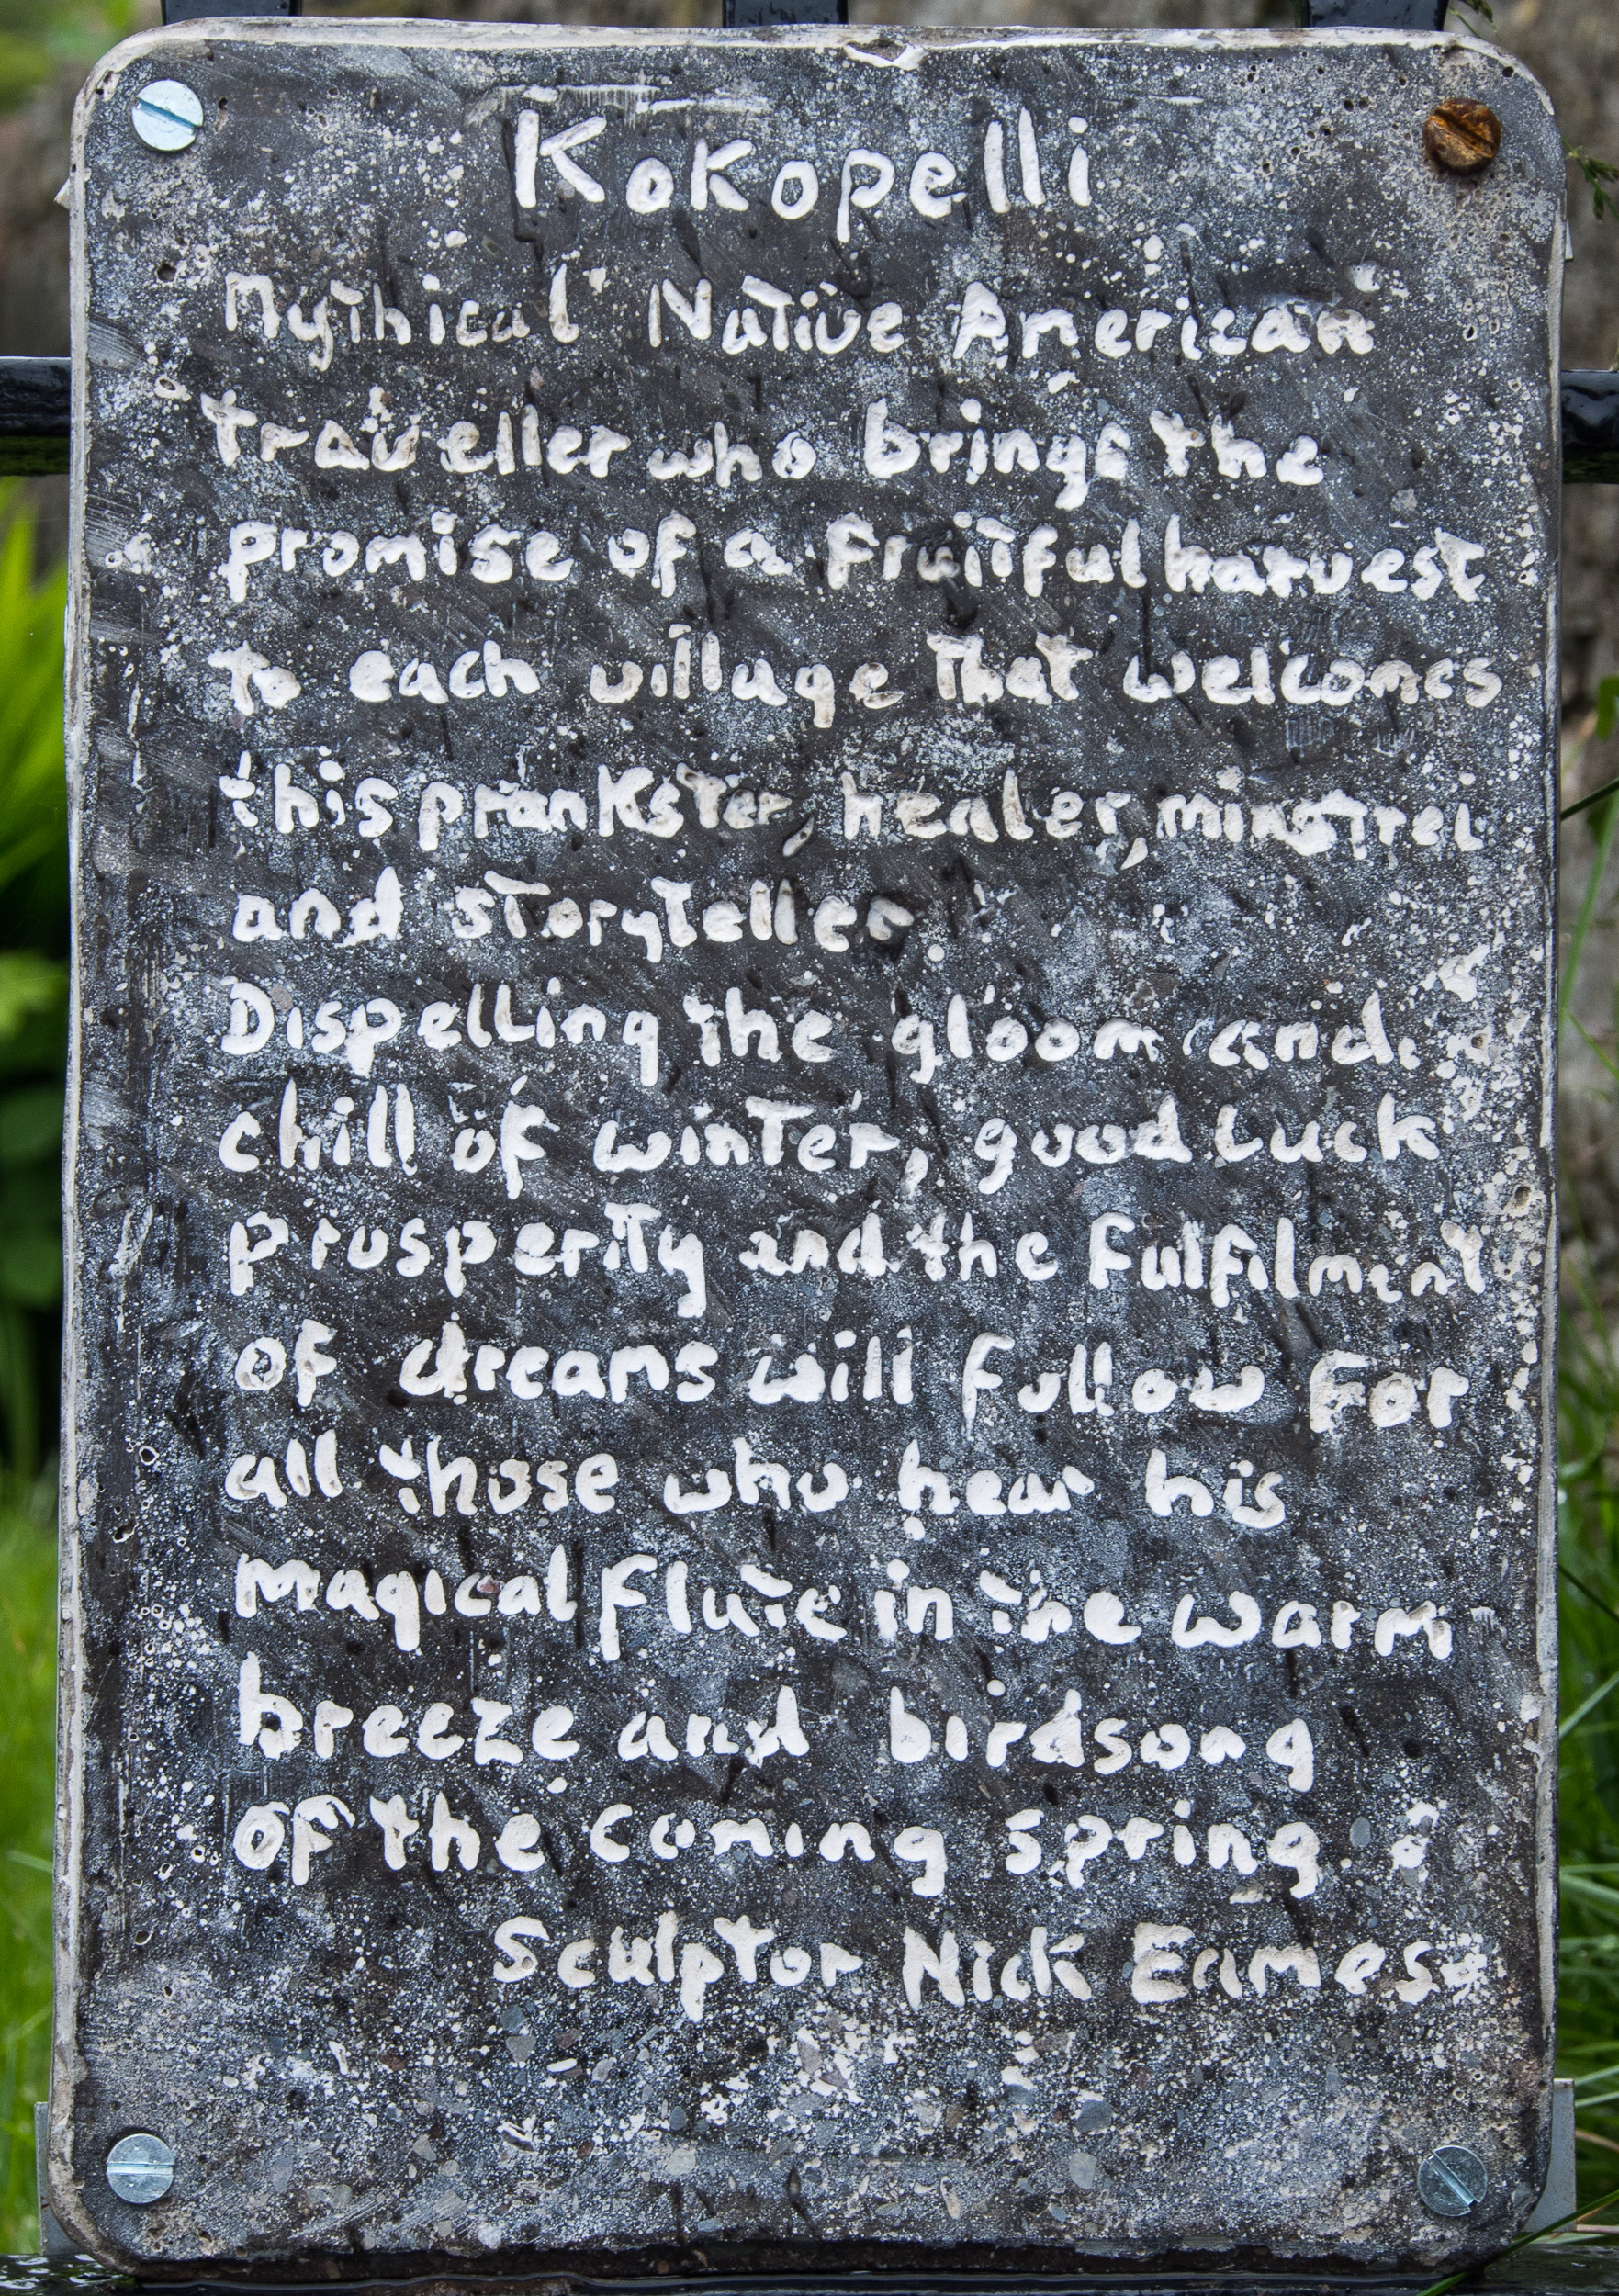 Kokopelli
Mythical Native American
traveller who brings the
promise of a fruitful harvest
to each village that welcomes
this prankster, healer, minstrel
and storyteller.
Dispelling the gloom and
chill of winter, good luck
prosperity and the fulfilment
of dreams will follow for
all those who hear his
magical flute in the warm
breeze and birdsong
of the coming spring
Sculptor Nick Eames